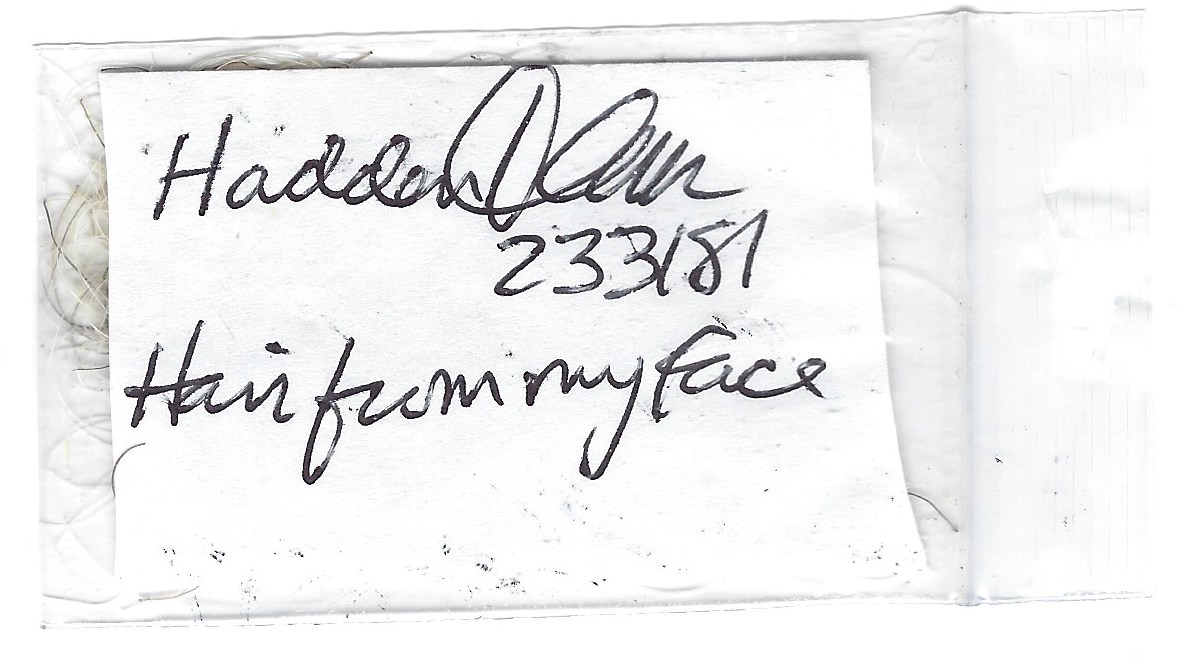 Hadden
233181
Hair from my face